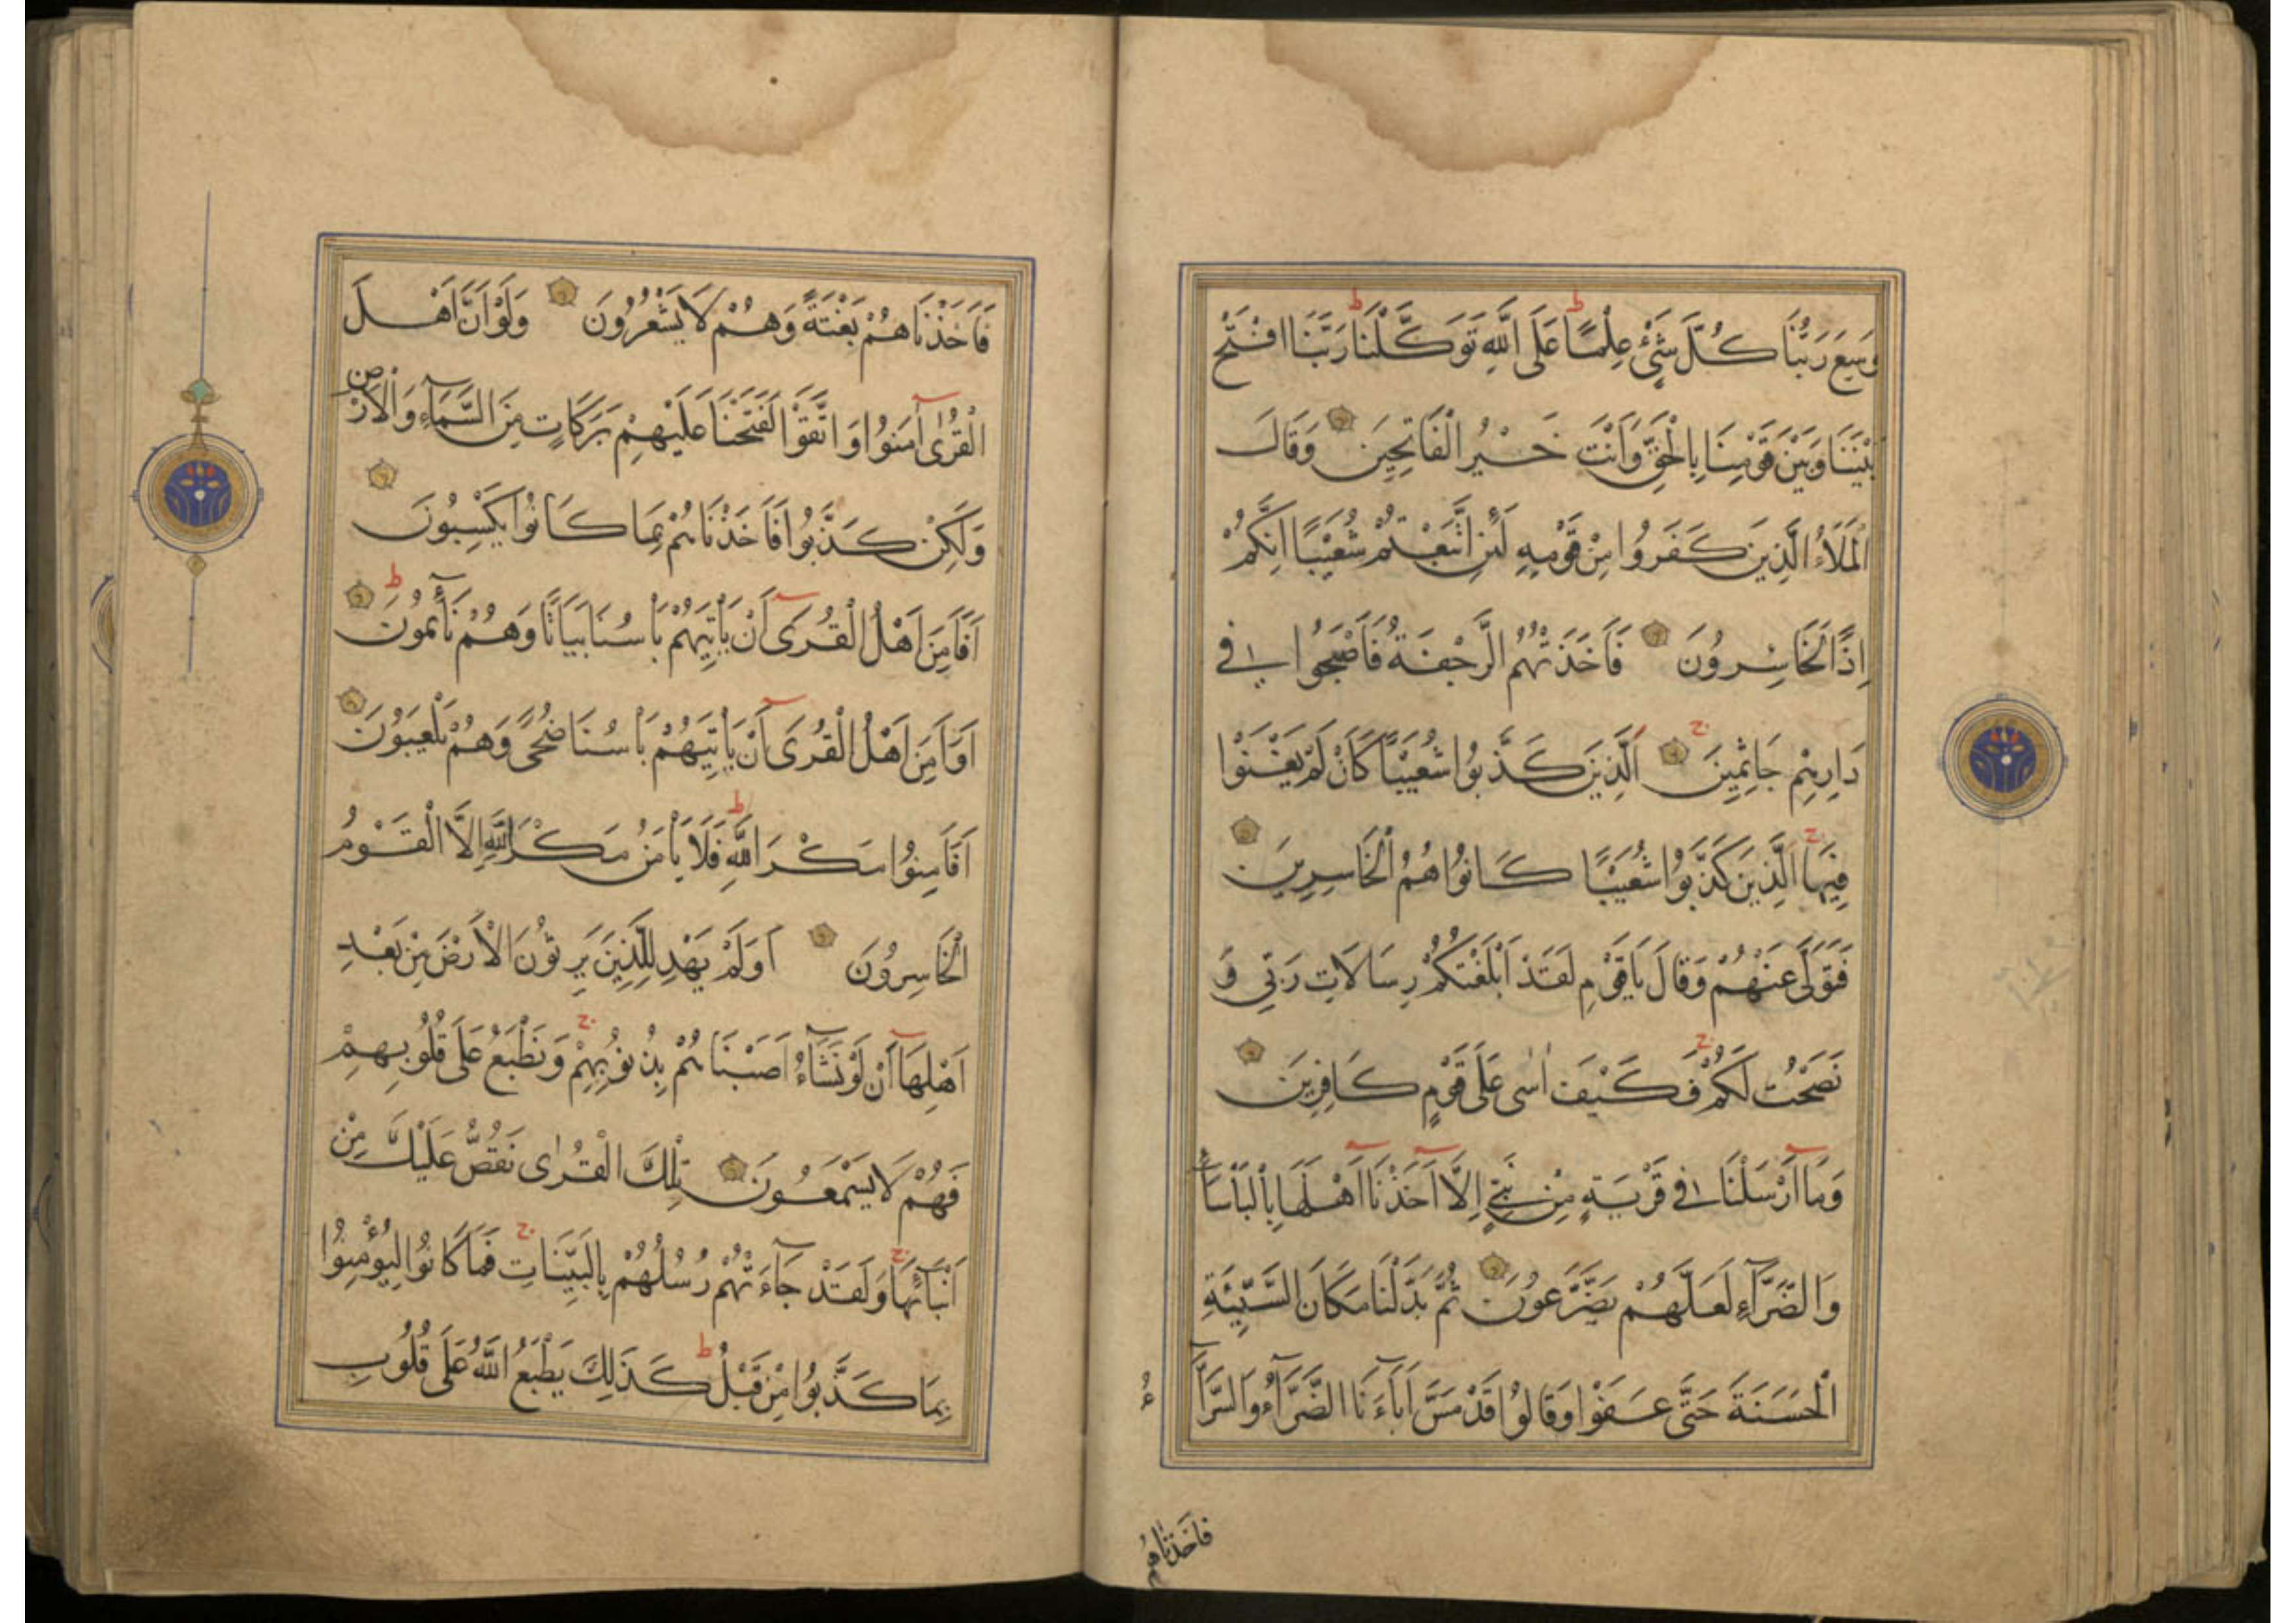 وَسِعَ رَبُّنَا كُلَّ شَيْءٍ عِلْمًا عَلَى اللّٰهِ تَوَكَّلْنَا رَبَّنَا افْتَحْ
بَيْنَنَا وَبَيْنَ قَوْمِنَا بِالْحَقِّ وَاَنْتَ خَيْرُ الْفَاتِحِينَ وَقَالَ
الْمَلَاُ الَّذِينَ كَفَرُوا مِنْ قَوْمِهِ لَئِنِ اتَّبَعْتُمْ شُعَيْبًا اِنَّكُمْ
اِذًا لَخَاسِرُونَ فَاَخَذَتْهُمُ الرَّجْفَةُ فَاَصْبَحُوا فِي
دَارِهِمْ جَاثِمِينَ اَلَّذِينَ كَذَّبُوا شُعَيْبًا كَاَنْ لَمْ يَغْنَوْا
فِيهَا اَلَّذِينَ كَذَّبُوا شُعَيْبًا كَانُوا هُمُ الْخَاسِرِينَ
فَتَوَلَّى عَنْهُمْ وَقَالَ يَا قَوْمِ لَقَدْ اَبْلَغْتُكُمْ رِسَالَاتِ رَبِّي وَ
نَصَحْتُ لَكُمْ فَكَيْفَ اٰسٰى عَلَى قَوْمٍ كَافِرِينَ
وَمَا اَرْسَلْنَا فِي قَرْيَةٍ مِنْ نَبِيٍّ اِلَّا اَخَذْنَا اَهْلَهَا بِالْبَاْسَاۤءِ
وَالضَّرَّاۤءِ لَعَلَّهُمْ يَضَّرَّعُونَ ثُمَّ بَدَّلْنَا مَكَانَ السَّيِّئَةِ
الْحَسَنَةَ حَتَّى عَفَوْا وَقَالُوا قَدْ مَسَّ اٰبَاۤءَنَا الضَّرَّاۤءُ وَالسَّرَّاۤءُ
فَاَخَذْنَاهُمْ
فَاَخَذْنَاهُمْ بَغْتَةً وَهُمْ لَا يَشْعُرُونَ وَلَوْ اَنَّ اَهْلَ
الْقُرٰى اٰمَنُوا وَاتَّقَوْا لَفَتَحْنَا عَلَيْهِمْ بَرَكَاتٍ مِنَ السَّمَاۤءِ وَالْاَرْضِ
وَلَكِنْ كَذَّبُوا فَاَخَذْنَاهُمْ بِمَا كَانُوا يَكْسِبُونَ
اَفَاَمِنَ اَهْلُ الْقُرَى اَنْ يَاْتِيَهُمْ بَاْسُنَا بَيَاتًا وَهُمْ نَاۤئِمُونَ
اَوَاَمِنَ اَهْلُ الْقُرَى اَنْ يَاْتِيَهُمْ بَاْسُنَا ضُحًى وَهُمْ يَلْعَبُونَ
اَفَاَمِنُوا مَكْرَ اللّٰهِ فَلَا يَاْمَنُ مَكْرَ اللّٰهِ اِلَّا الْقَوْمُ
الْخَاسِرُونَ اَوَلَمْ يَهْدِ لِلَّذِينَ يَرِثُونَ الْاَرْضَ مِنْ بَعْدِ
اَهْلِهَا اَنْ لَوْ نَشَاۤءُ اَصَبْنَاهُمْ بِذُنُوبِهِمْ وَنَطْبَعُ عَلَى قُلُوبِهِمْ
فَهُمْ لَا يَسْمَعُونَ تِلْكَ الْقُرٰى نَقُصُّ عَلَيْكَ مِنْ
اَنْبَاۤئِهَا وَلَقَدْ جَاۤءَتْهُمْ رُسُلُهُمْ بِالْبَيِّنَاتِ فَمَا كَانُوا لِيُؤْمِنُوا
بِمَا كَذَّبُوا مِنْ قَبْلُ كَذَلِكَ يَطْبَعُ اللّٰهُ عَلَى قُلُوبِ